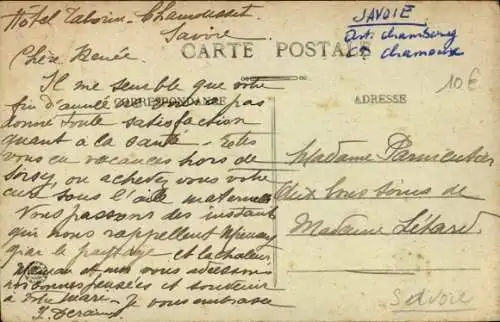 Hôtel Tabouin - Chamousset
Savoie
SAVOIE
Art: Chambery
Cn Chamoux
CARTE POSTALE
10€
CORRESPONDANCE
ADRESSE
Chère Renée,
Il me semble que votre
fin d'année ne vous a pas
donné toute satisfaction
quant à la santé - Êtes
vous en vacances hors de
ou achevez vous votre
cure sous l'aile maternelle
Nous passons des instants
qui nous rappellent
par le paysage et la chaleur.
Maman et moi vous adressons
nos bonnes pensées et souvenir
à votre mari - Je vous embrasse
Madame Parmentier
aux bons soins de
Madame Létard
Savoie